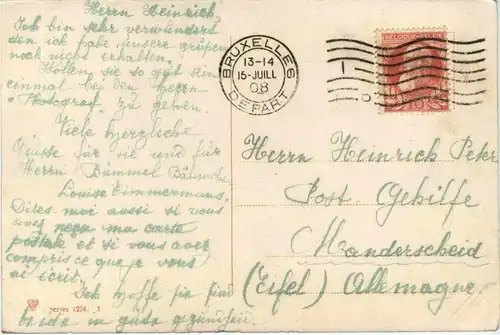 Herrn Heinrich,
Ich bin sehr verwundert
den ich habe unsere grüßen
noch nicht erhalten.
Hollen sie so gut sein
einmal bei den Herrn
"Photograf" zu gehen.
Viele herzliche
Grüsse für sie und für
Herrn Bümmel Bäumchen
Louise Timmermans.
Dites moi aussi si vous
avez reçu ma carte
postale et si vous avez
compris ce que je vous
ai écrit.
Ich hoffe sie sind
beide in gute gesundheit.
series 1274. 1
BRUXELLES
13-14
15-JUILL
08
DEPART
BELGIQUE-BELGIE
10
Herrn Heinrich Peter
Post-Gehilfe
Manderscheid
(Eifel) Allemagne